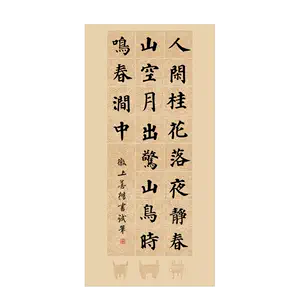 人閑桂花落夜靜春
山空月出驚山鳥時
鳴春澗中